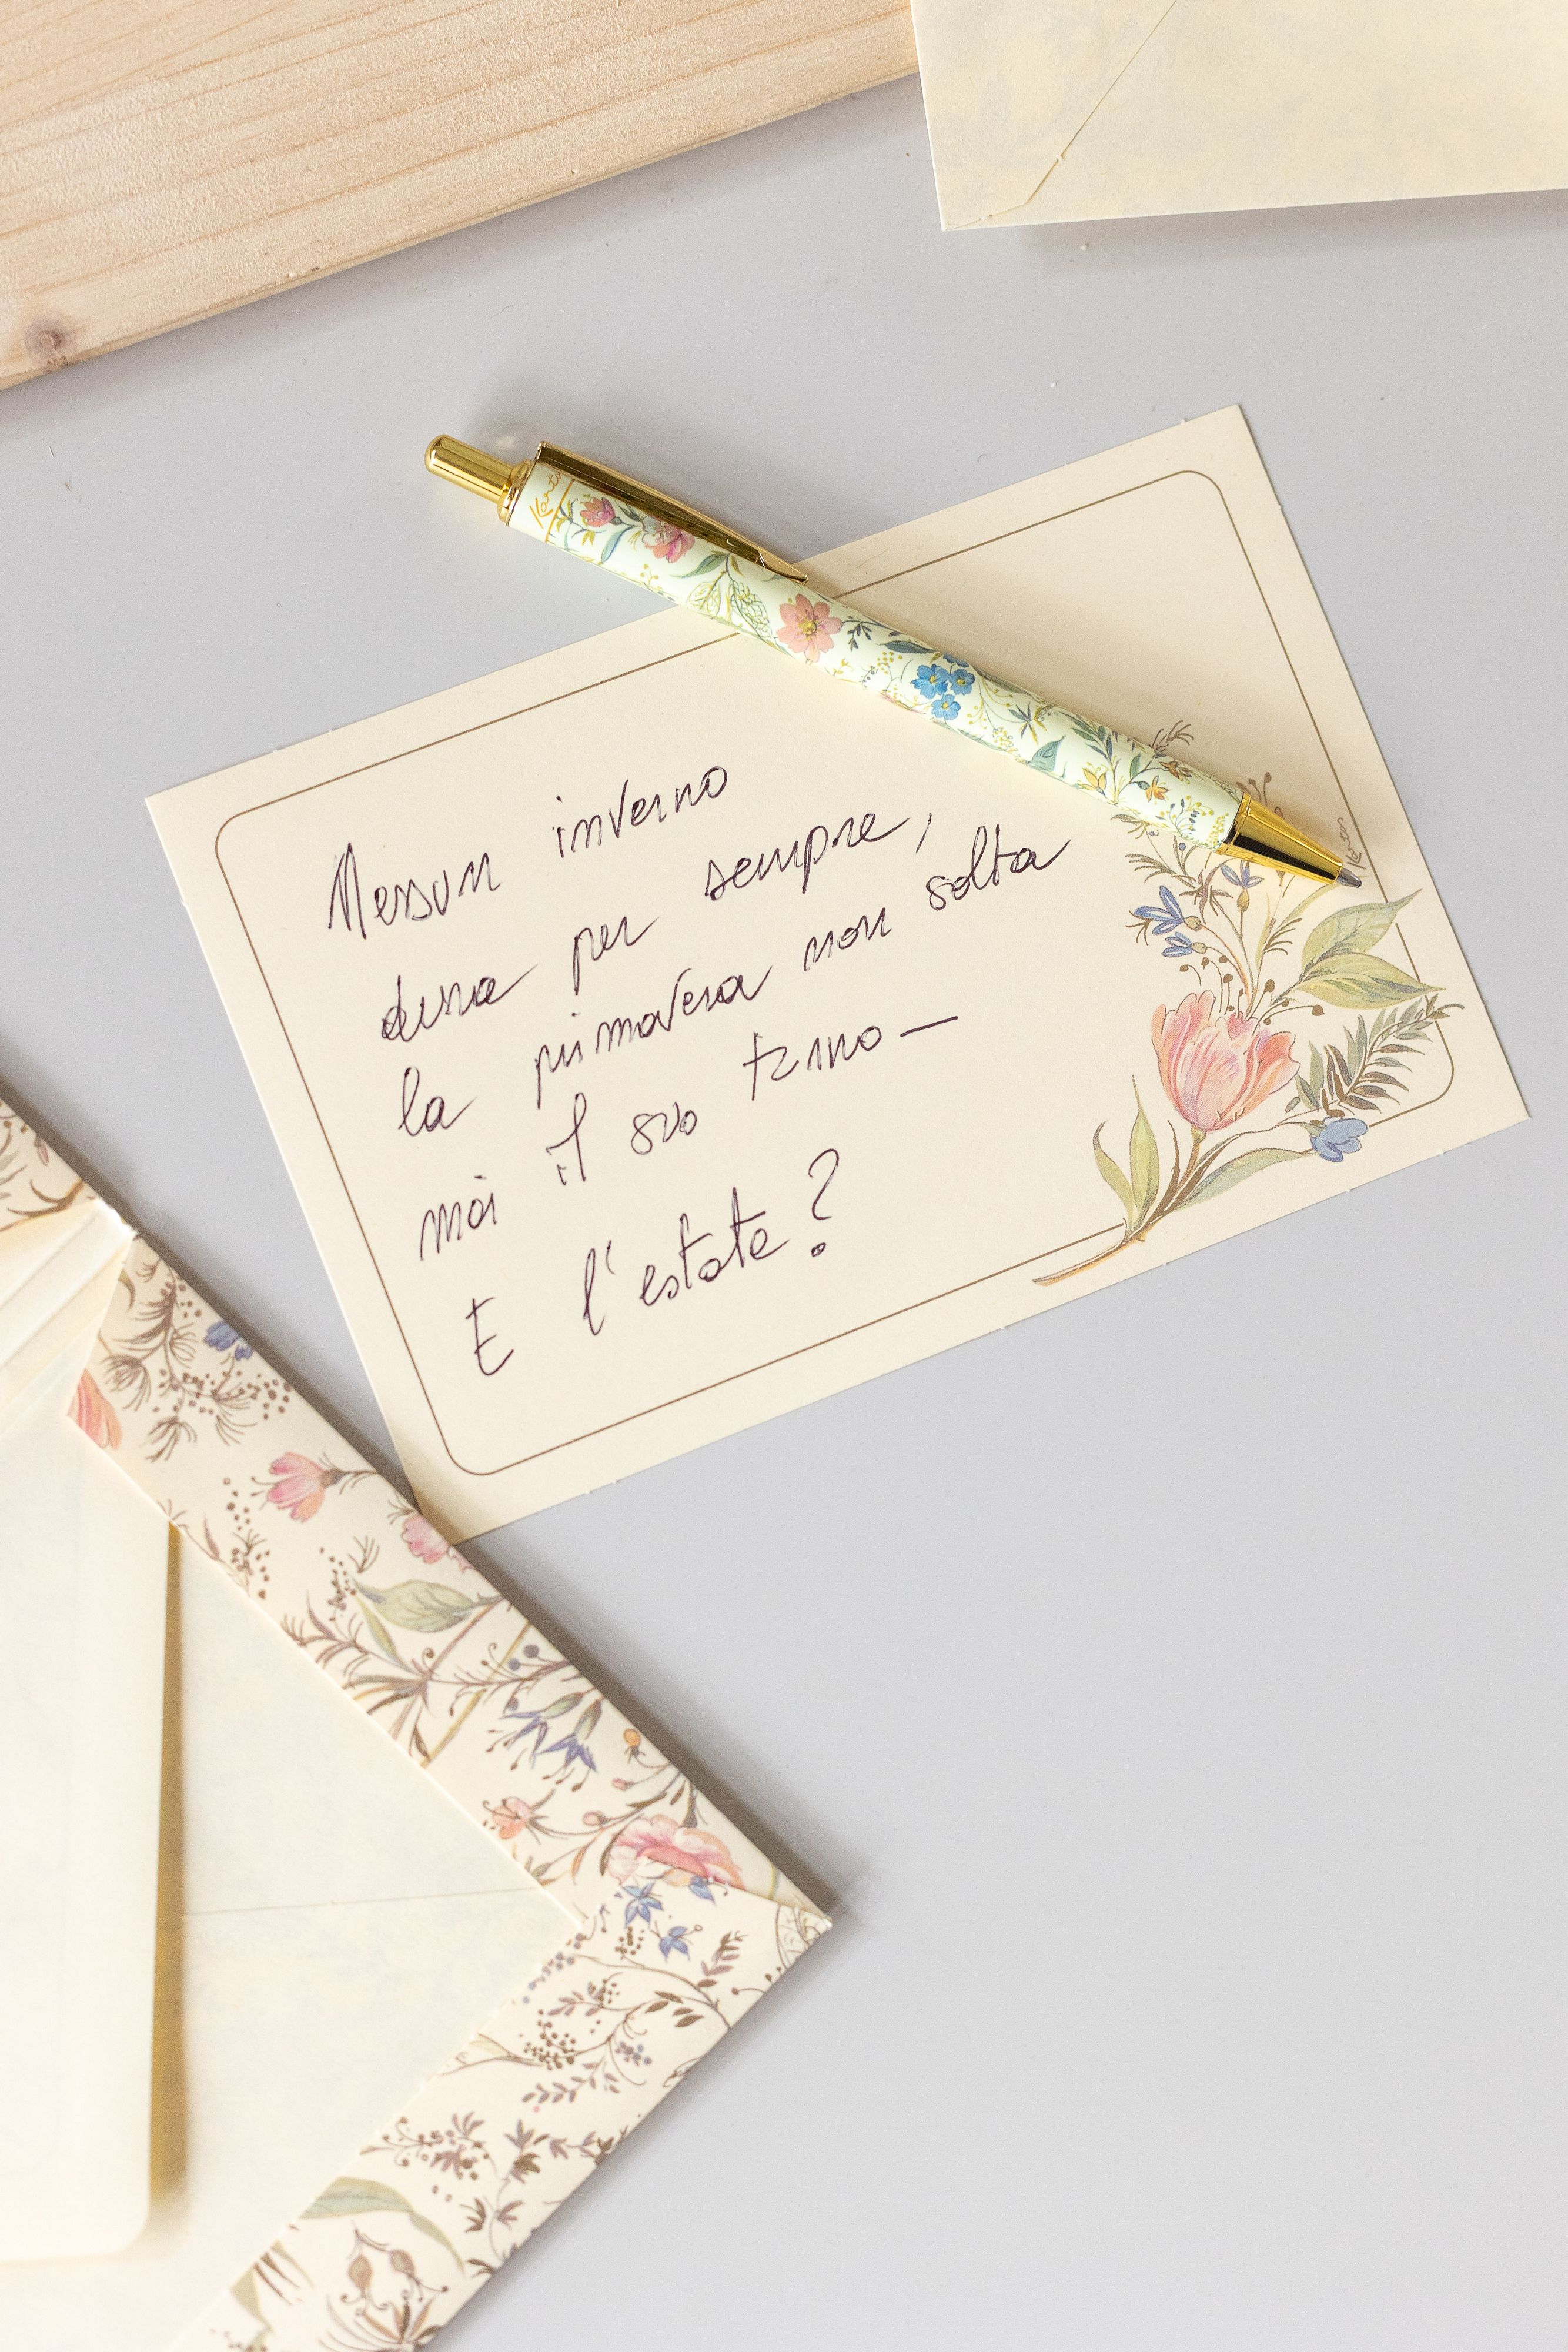 Kartos
Nessun inverno
dura per sempre,
la primavera non salta
mai il suo turno —
E l'estate?
Kartos